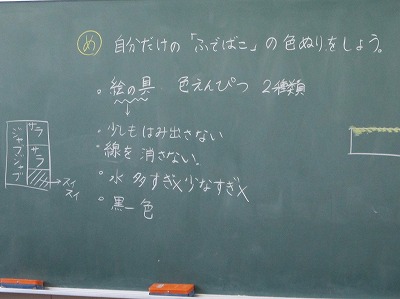 め 自分だけの「ふでばこ」の色ぬりをしよう。
・絵の具 色えんぴつ 2種類
・少しもはみ出さない
・線を消さない。
・水 多すぎ×少なすぎ×
・黒一色
サラ
サラ
ジャブジャブ
→スイスイ